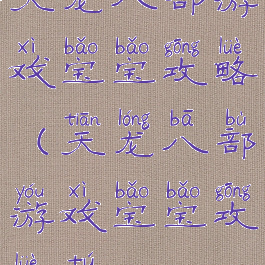 天龙八部游
xì bǎo bǎo gōng lüè
戏宝宝攻略
tiān lóng bā bù
（天龙八部
yóu xì bǎo bǎo gōng
游戏宝宝攻
lüè tú